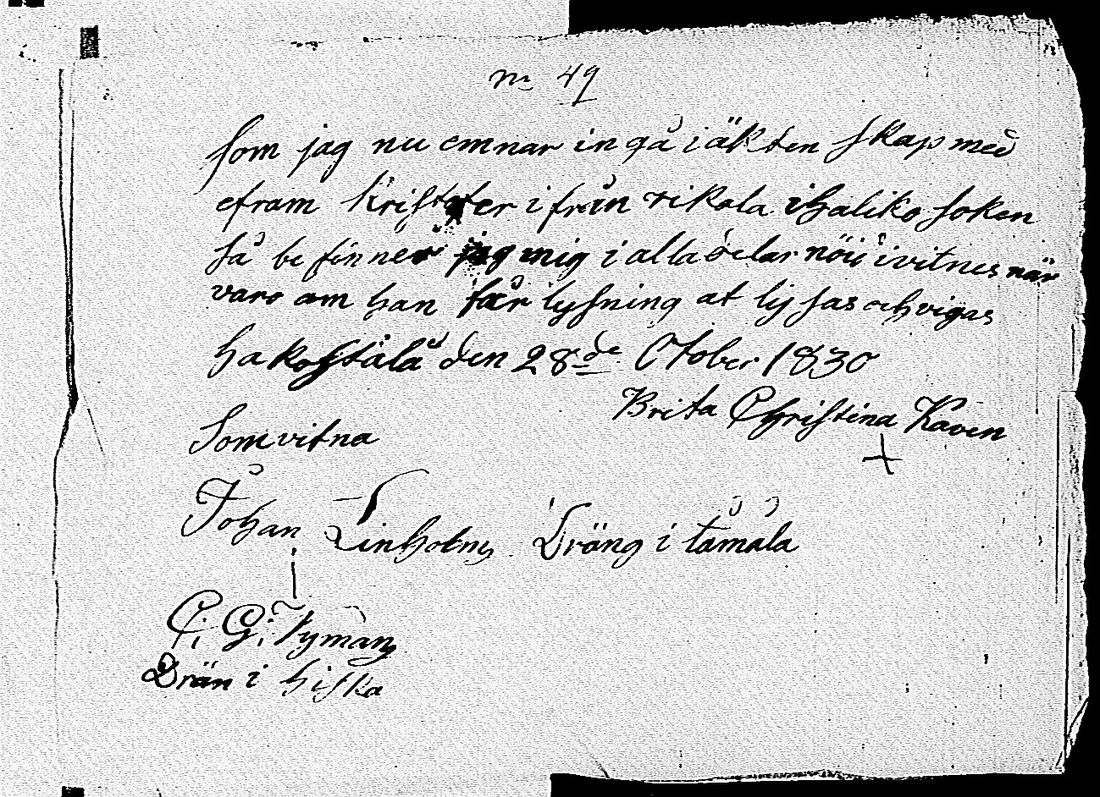 No 49
som jag nu emnar in gå i äkten skap med
efram Kristofer i från rikala i haliko soken
så be finner jag mig i alla delar nöid i vitnes när
varo am han får lysning at lysas och vigas
ha kostala den 28de October 1830
Brita Christina Kaven
Som vitna
Johan Linholm Dräng i tamala
C. G. Nyman
Drän i hiska